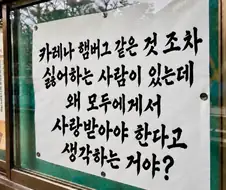 카레나 햄버그 같은 것 조차
싫어하는 사람이 있는데
왜 모두에게서
사랑받아야 한다고
생각하는 거야?